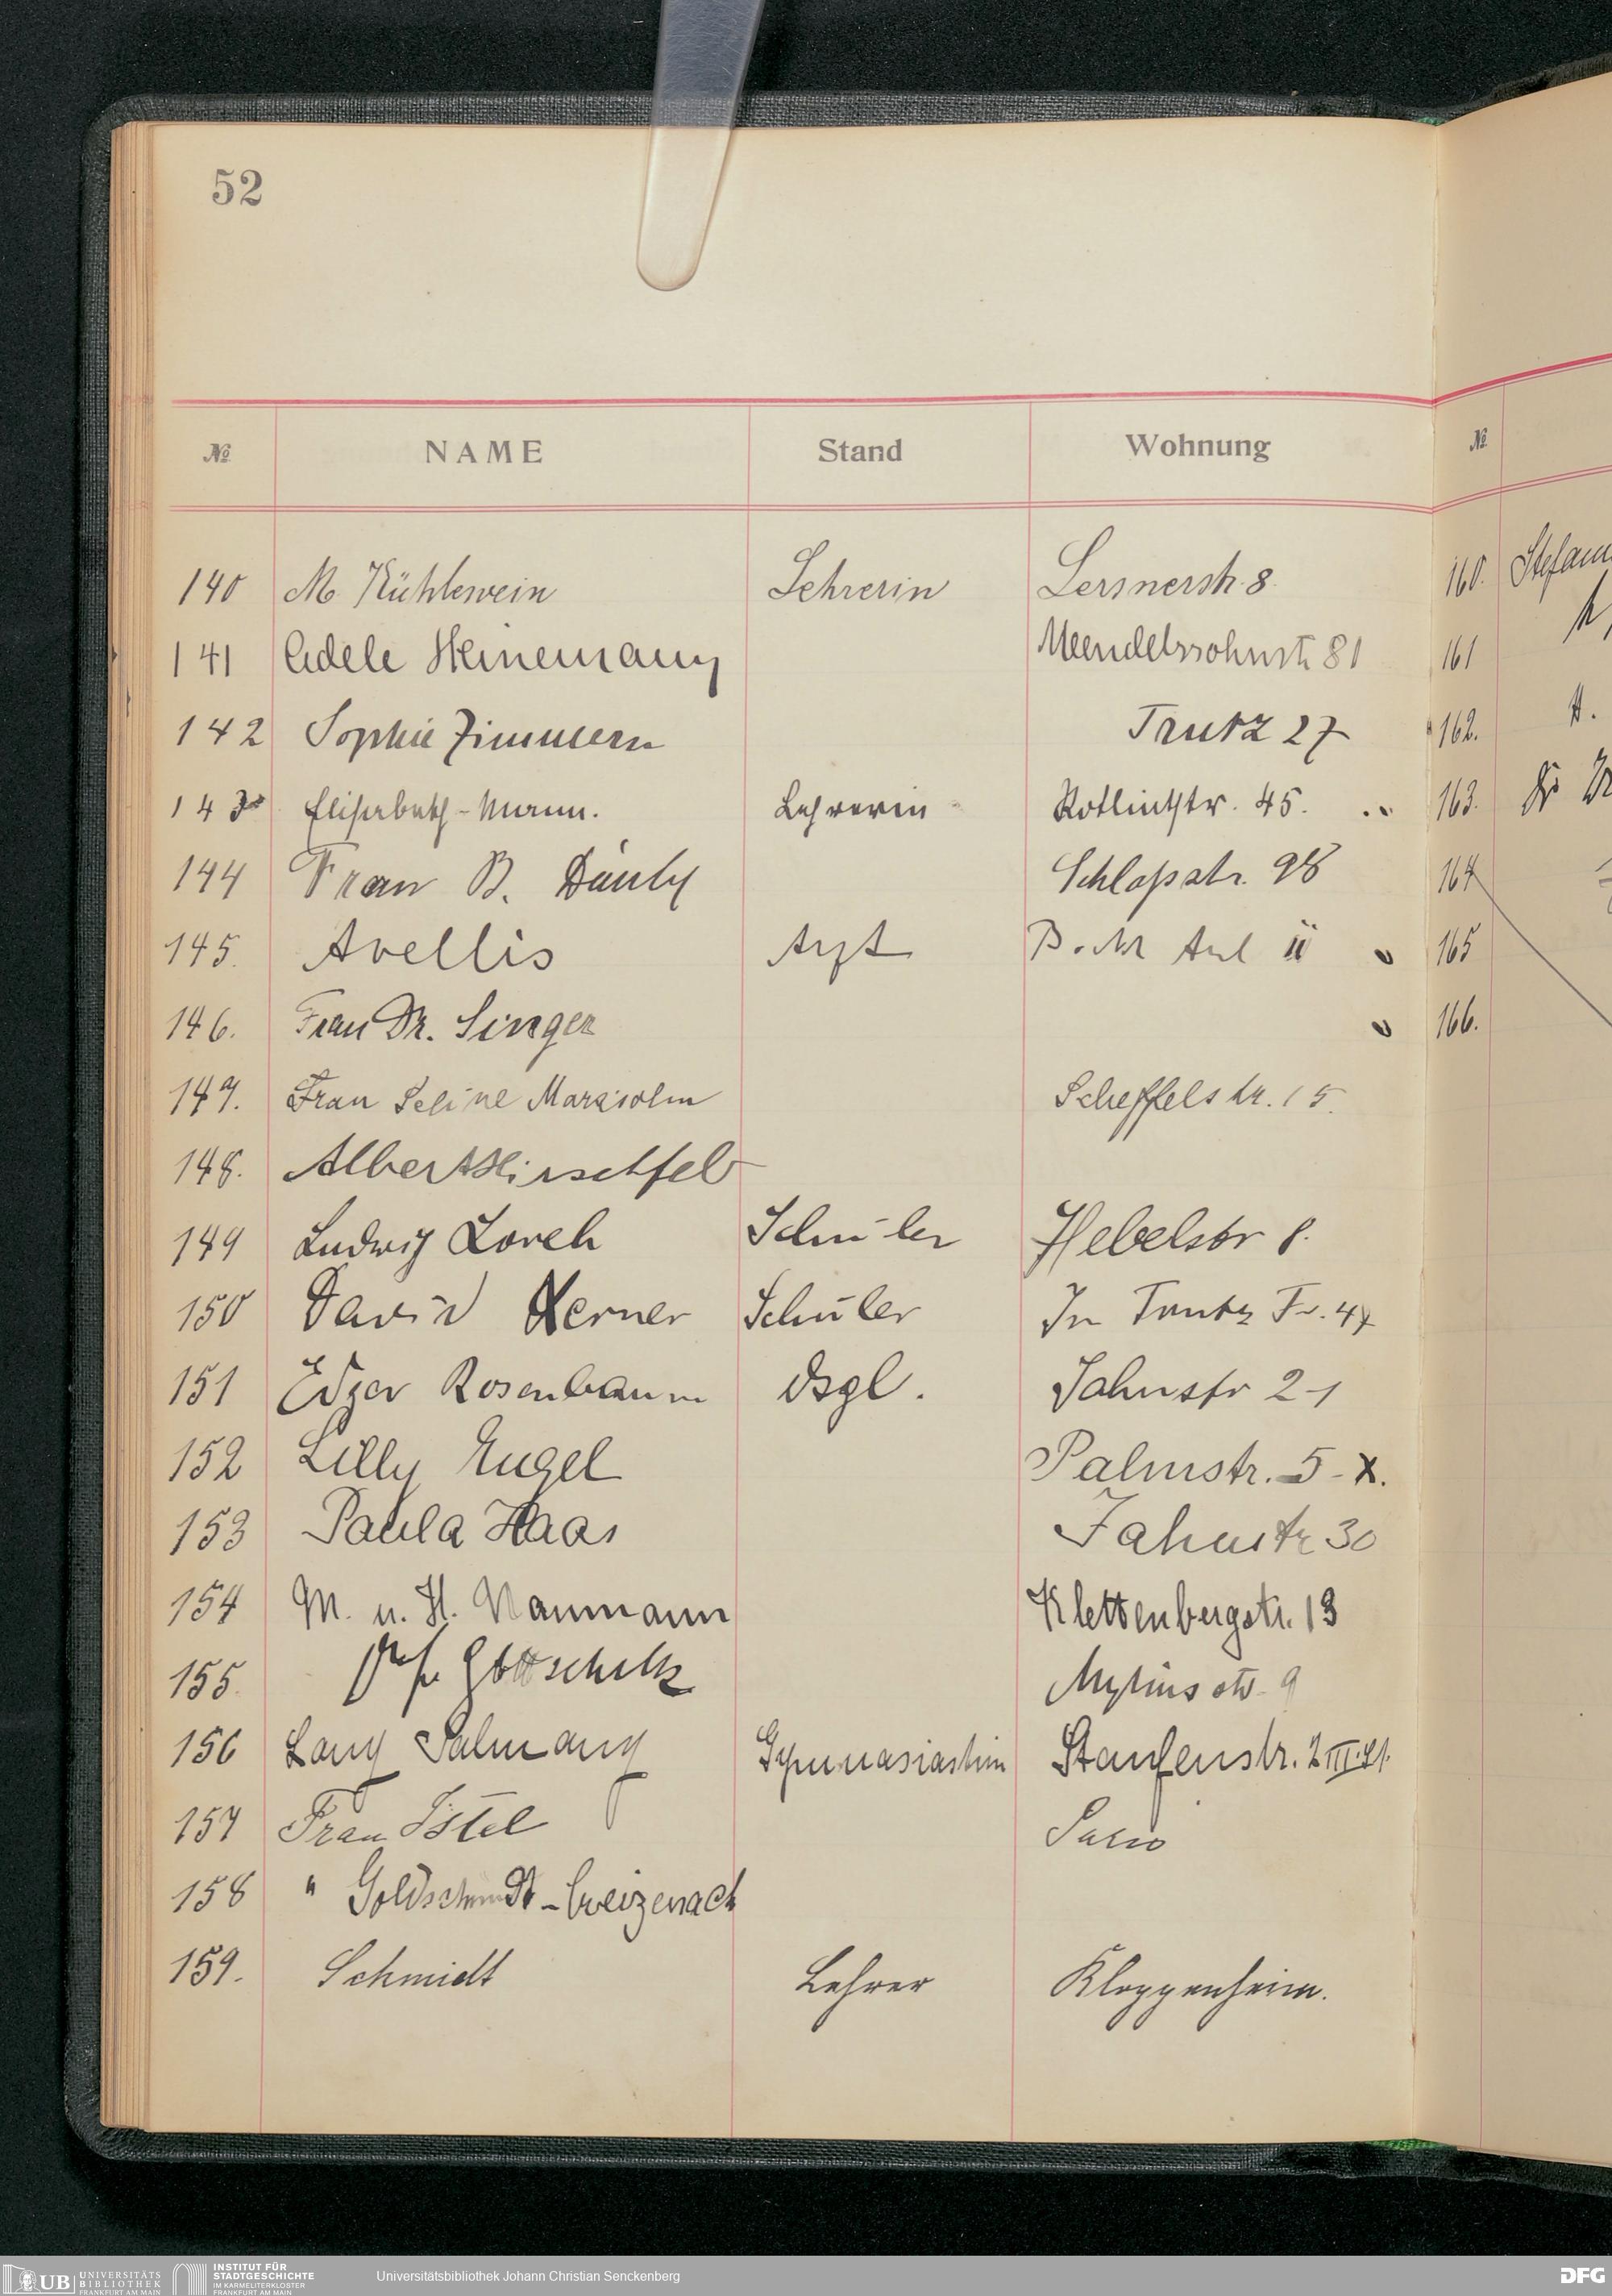 52
№ NAME Stand Wohnung
140 M. Kühlewein Lehrerin Lersnerstr. 8.
141 Adele Heinemann Mendelssohnstr 81
142 Sophie Zimmern Trutz 27
143 Elisabeth Lehrerin Rotlintstr. 45.
144 Frau B. Schloßstr. 98
145. Avellis Arzt
146. Frau Dr. Singer
147. Frau Seline Scheffelstr. 15.
148. Albert Hirschfeld
149 Ludwig Lorch Schüler Hebelstr 8.
150 David Werner Schüler Im Trutz Fr. 47
151 Edgar Rosenbaum dsgl. Jahnstr 21
152 Lilly Engel Palmstr. 5 - X.
153 Paula Haas Jahnstr 30
154 M. u. H. Naumann Klettenbergstr. 13
155. Prof. Gottschalk Myliusstr. 9
156 Salmang Gymnasiastin Staufenstr. 2 III. St.
157 Frau Istel Paris
158 " Goldschmidt-Creizenach
159. Schmidt Lehrer Kloppenheim.
№
160.
161
162.
163.
164
165
166.
UB UNIVERSITÄTS
BIBLIOTHEK
FRANKFURT AM MAIN
INSTITUT FÜR
STADTGESCHICHTE
IM KARMELITERKLOSTER
FRANKFURT AM MAIN
Universitätsbibliothek Johann Christian Senckenberg
DFG